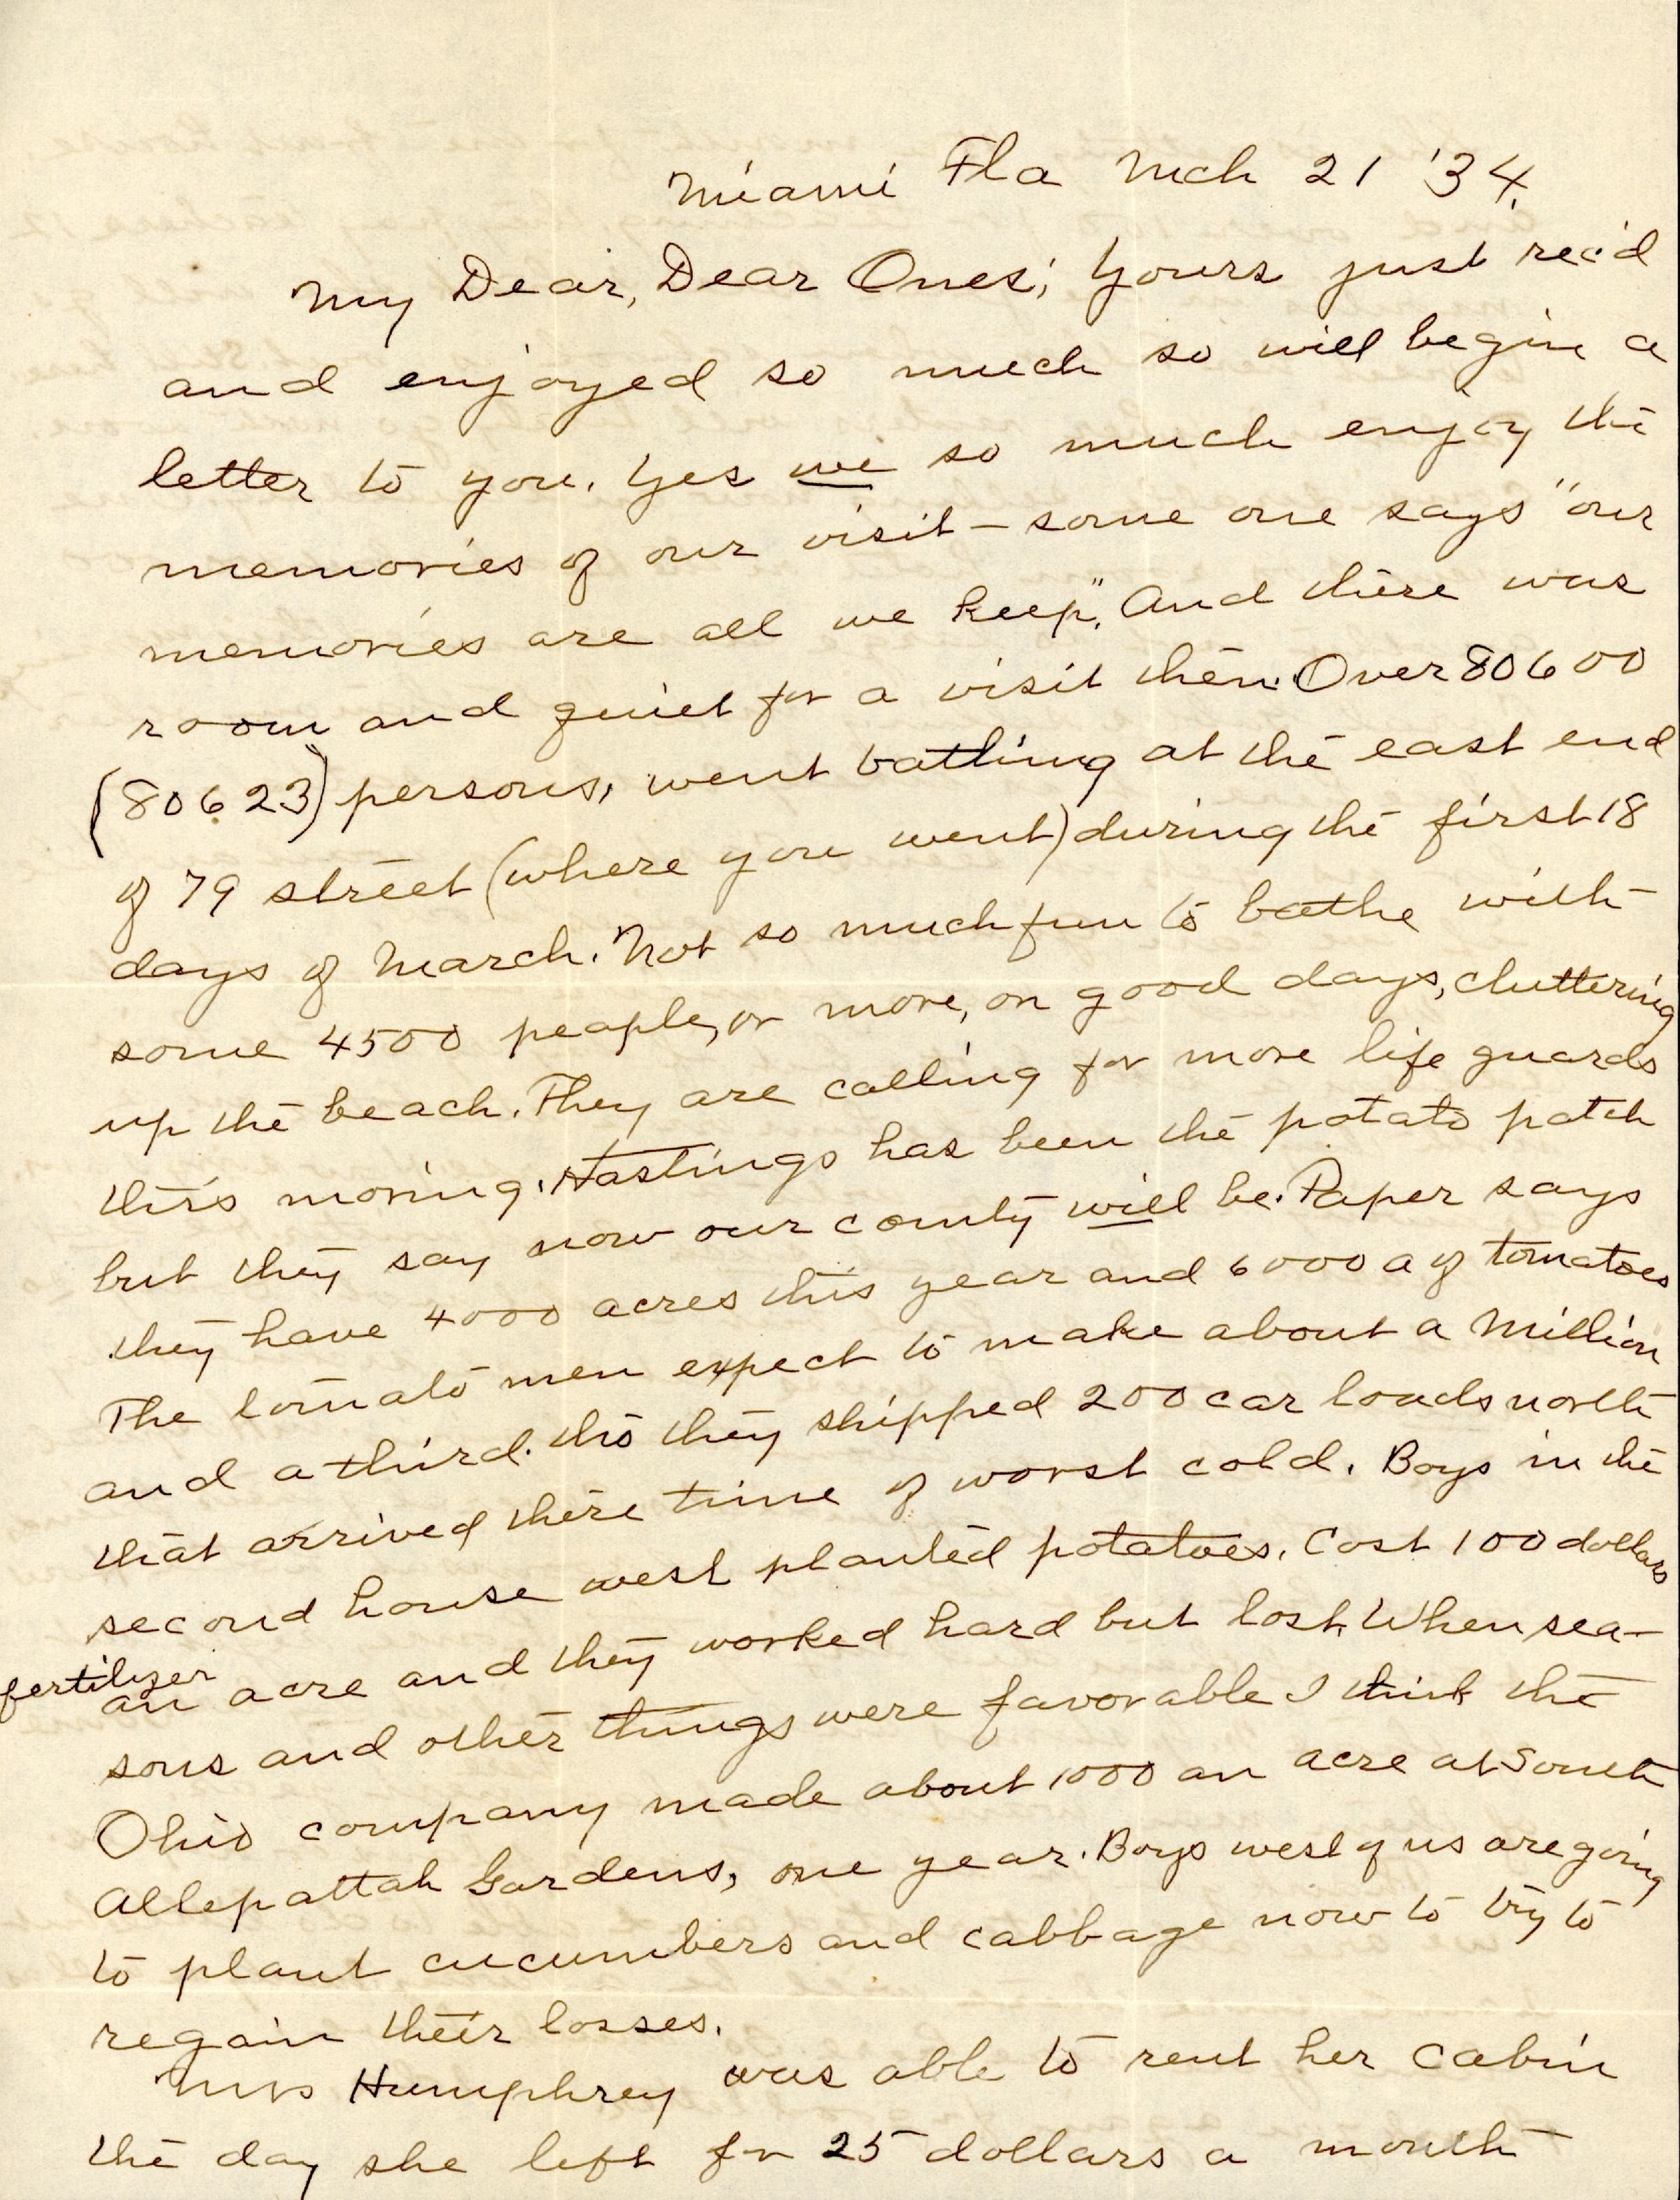 Miami Fla Mch 21 '34.
My Dear, Dear Ones; Yours just rec'd
and enjoyed so much so will begin a
letter to you. Yes we so much enjoy the
memories of our visit – some one says "our
memories are all we keep". And there was
room and quiet for a visit then. Over 80600
(80623) persons, went bathing at the east end
of 79 street (where you went) during the first 18
days of March. Not so much fun to bathe with
some 4500 people, or more, on good days, cluttering
up the beach. They are calling for more life guards
this morning. Hastings has been the potato patch
but they say now our county will be. Paper says
they have 4000 acres this year and 6000 a of tomatoes
The tomato men expect to make about a million
and a third. tho they shipped 200 car loads north
that arrived there time of worst cold. Boys in the
second house west planted potatoes. Cost 100 dollars
fertilizer
an acre and they worked hard but lost. When sea-
sons and other things were favorable I think the
Ohio company made about 1000 an acre at South
Allapattah Gardens, one year. Boys west of us are going
to plant cucumbers and cabbage now to try to
regain their losses.
Mrs Humphrey was able to rent her cabin
the day she left for 25 dollars a month